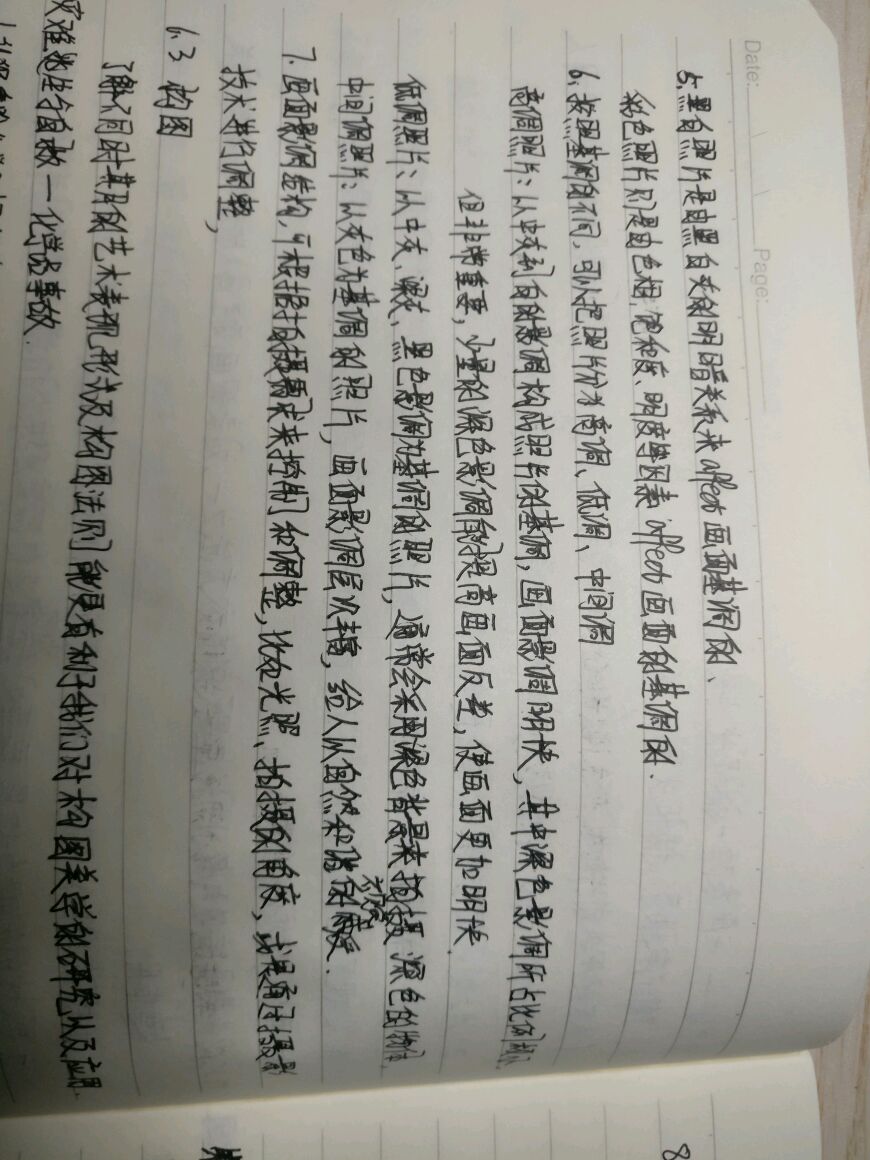 Date:
Page:
5. 黑白照片是由黑白灰的明暗关系来affect画面基调的、
彩色照片则是由色相、饱和度、明度等因素affect画面的基调的.
6. 按照基调的不同, 可以把照片分为高调、低调、中间调
高调照片: 以中灰到白的影调构成照片的基调, 画面影调明快, 其中深色影调所占比例
但非常重要, 少量的深色影调能提高画面反差, 使画面更加明快.
低调照片: 以中灰、深灰、黑色影调为基调的照片, 通常会采用深色背景来拍摄深色的物体,
中间调照片: 以灰色为基调的照片, 画面影调层次丰富, 给人以自然和谐的感受.
7. 画面影调结构, 可根据拍摄需求来控制和调整, 比如光照、拍摄的角度, 或是通过摄影
技术进行调整,
6.3 构图
了解不同时期的艺术表现形式及构图法则能更有利于我们对构图美学的研究以及应用.
灾难逃生与自救—化学品事故.
8